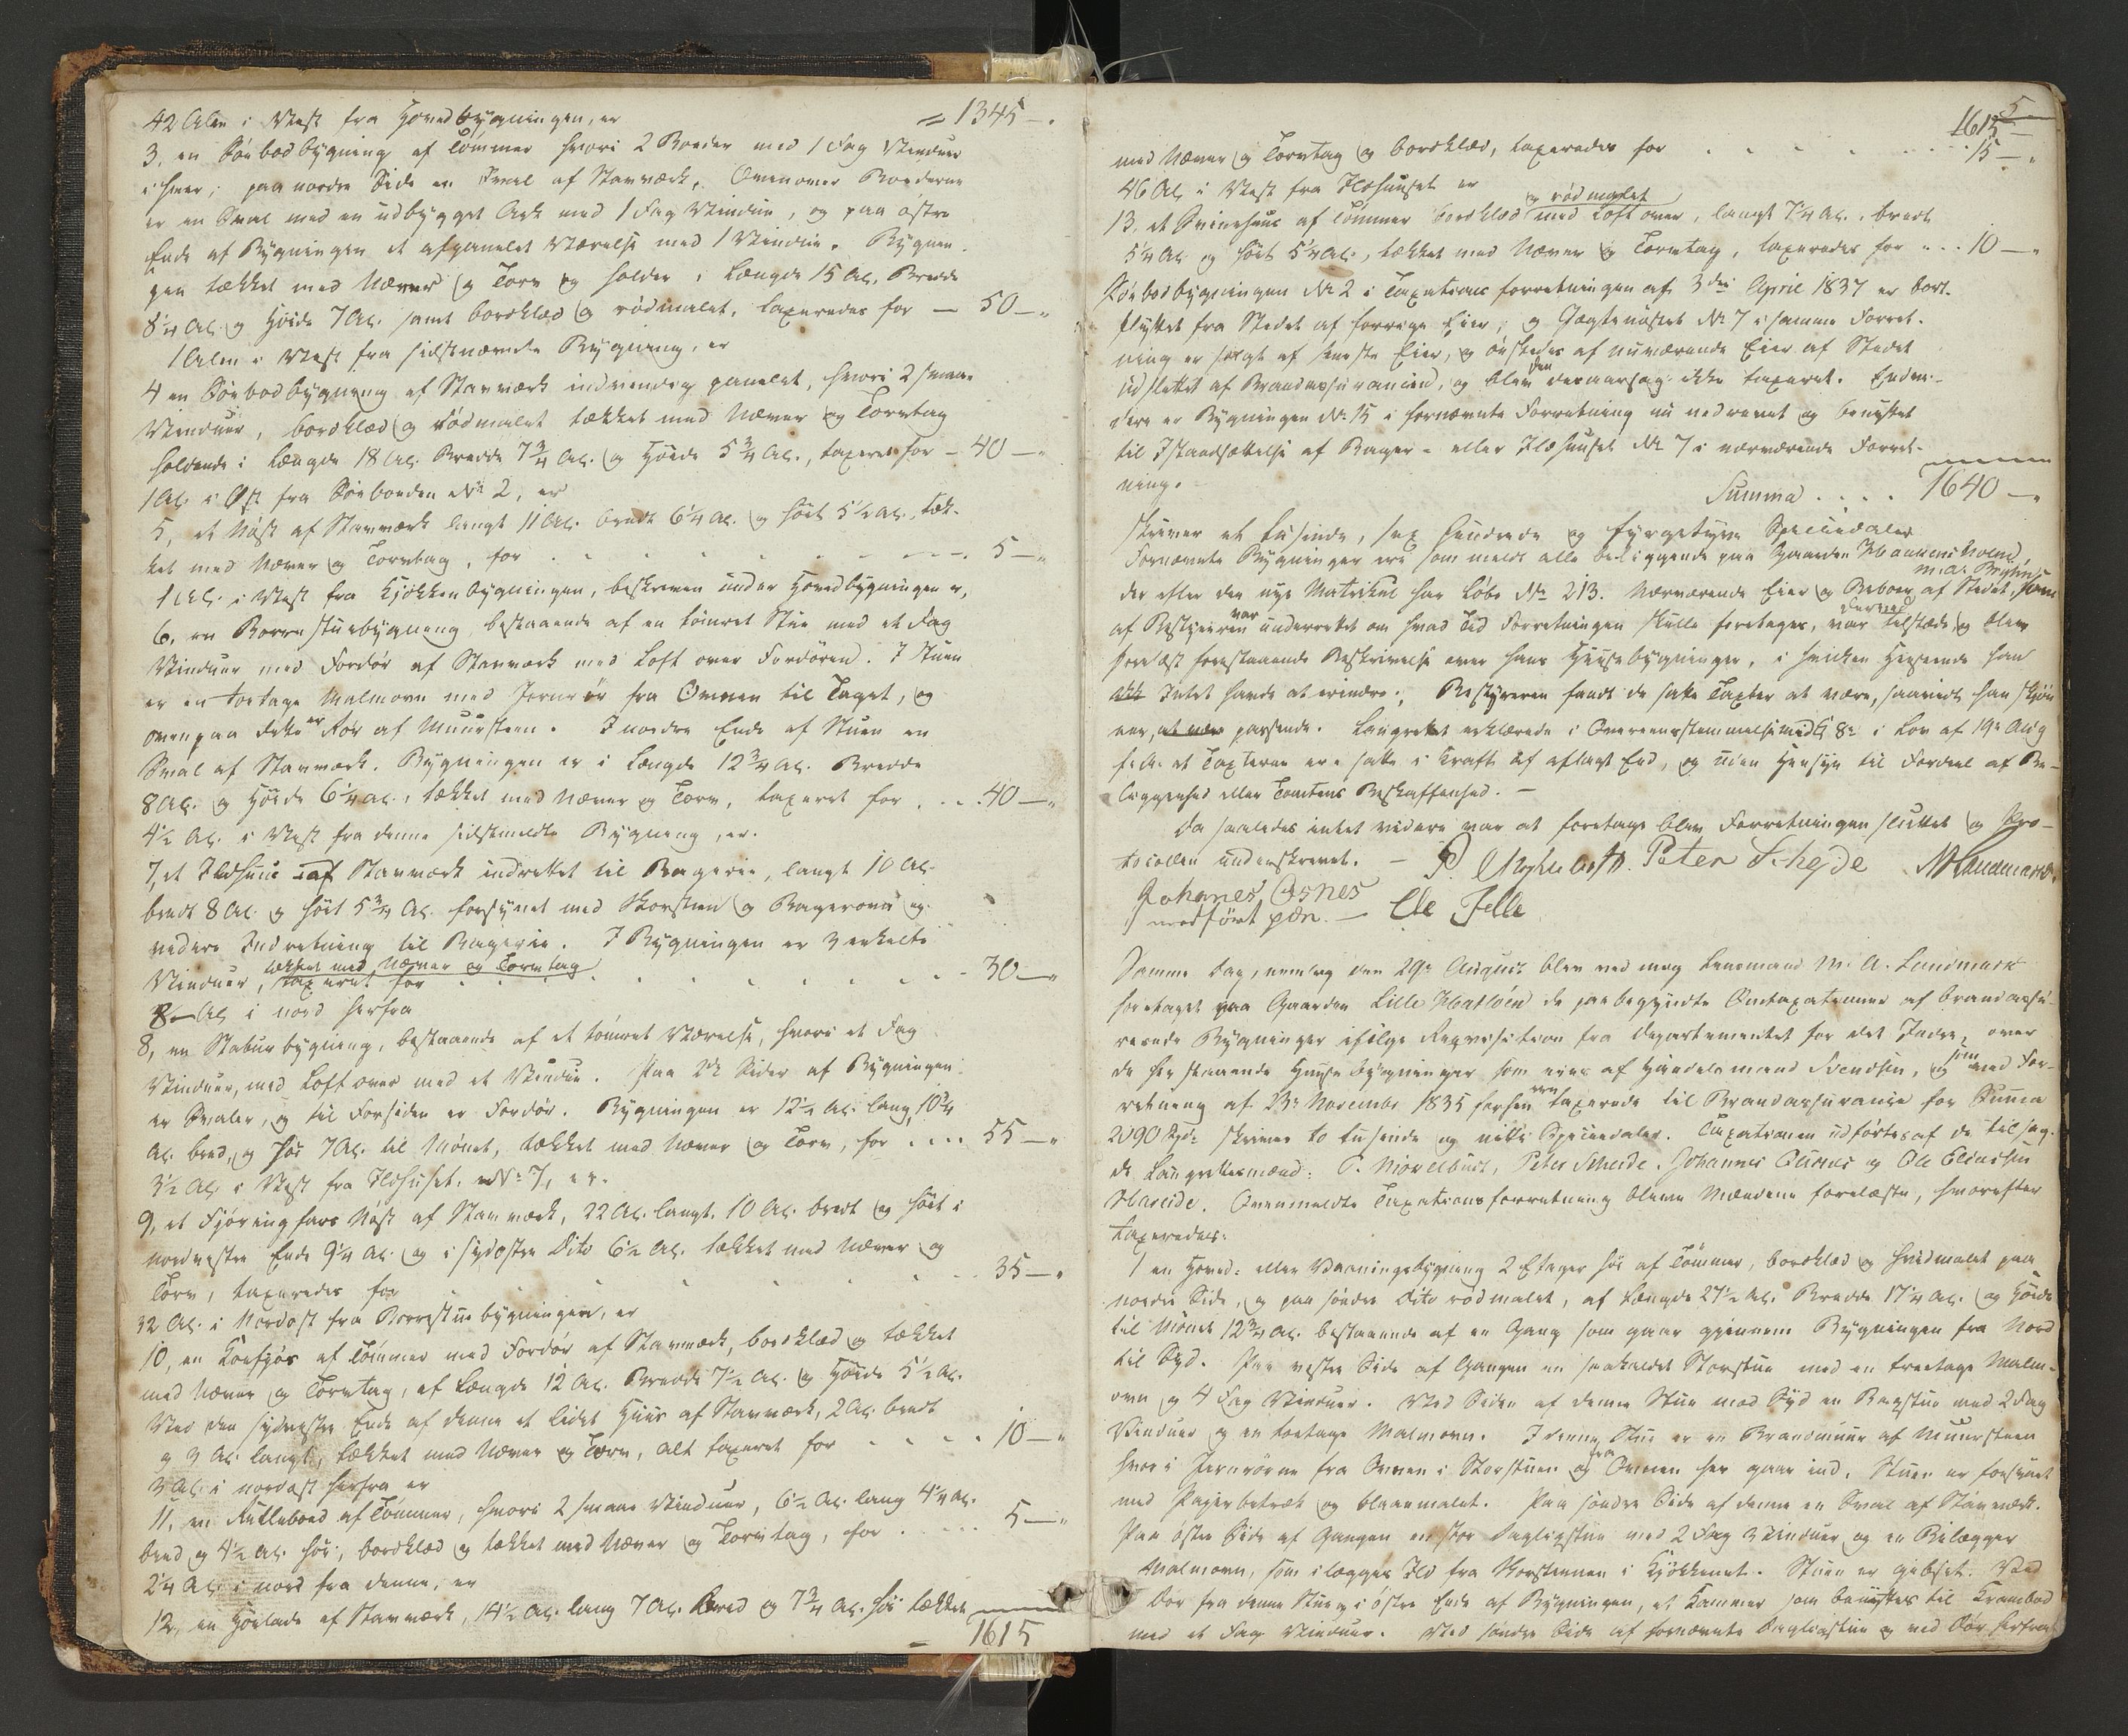 42 Alen i Vest fra Hovedbygningen, er = 1345 — .
3, en Söebodbygning af Tömmer hvori 2 Boeder med 1 Fag Vinduer
i hver; paa nordre Side en Sval af Stavværk. Ovenover Boederne
er en Sval med en udbygget Ark med 1 Fag Vindue, og paa östre
Ende af Bygningen et afpanelet Værelse med 1 Vindue. Bygnin-
gen tækket med Næver og Torv og holder i Længde 15 Al. Bredde
8 1/4 Al. og Höide 7 Al. samt bordklæd og rödmalet, taxeredes for — 50 — "
1 Alen i Vest fra sidstnævnte Bygning, er
4 en Söebodbygning af Stavværk indvendig panelet, hvori 2 smaa
Vinduer, bordklæd og rödmalet tækket med Næver og Torvtag
holdende i Længde 18 Al. Bredde 7 3/4 Al. og Höide 5 3/4 Al., taxeret for — 40 — "
1 Al. i Öst fra Söeboeden No 2, er
5, et Nöst af Stavværk langt 11 Al. bredt 6 1/4 Al. og höit 5 1/2 Al., tæk-
ket med Næver og Torvtag, for . . . . 5 — "
1 Al. i Vest fra Kjökkenbygningen, beskreven under Hovedbygningen er,
6, en Borrestuebygning bestaaende af en tömret Stue med et Fag
Vinduer med Fordör af Stavværk med Loft over Fordören. I Stuen
er en toetage Malmovn med Jernrör fra Ovnen til Taget, og
ovenpaa dette er Rör af Muursteen. I nordre Ende af Stuen en
Sval af Stavværk. Bygningen er i Længde 12 3/4 Al. Bredde
8 Al. og Höide 6 1/4 Al., tækket med Næver og Torv, taxeret for . . . 40 — "
4 1/2 Al. i Vest fra denne sidstmeldte Bygning, er.
7, et Ildhuus af Stavværk indrettet til Bagerie, langt 10 Al.
bredt 8 Al. og höit 5 3/4 Al. forsynet med Skorsteen og Bagerovn og
videre Indretning til Bagerie. I Bygningen er 3 enkelte
Vinduer, tækket med Næver og Torvtag taxeret for . . . . 30 — "
8 Al. i nord herfra
8, en Stabursbygning, bestaaende af et tömret Værelse, hvori et Fag
Vinduer, med Loft over med et Vindue. Paa 2de Sider af Bygningen
er Svaler, og til Forsiden er Fordör. Bygningen er 12 1/2 Al. lang, 10 3/4
Al. bred, og höi 7 Al. til Mönet, tækket med Næver og Torv, for . . . . 55 — "
3 1/2 Al. i Vest fra Ildhuset, No 7, er.
9, et Fjöringfars Nöst af Stavværk, 22 Al. langt, 10 Al. bredt og höit i
nordvestre Ende 9 1/4 Al. og i sydöstre Dito 6 1/2 Al. tækket med Næver og
Torv, taxeredes for . . . . 35 — "
32 Al. i Nordöst fra Borrestuebygningen, er
10, en Koefjös af Tömmer med Fordör af Stavværk, bordklæd og tækket
med Næver og Torvtag, af Længde 12 Al. Bredde 7 1/2 Al. og Höide 5 1/2 Al.
Ved den sydvestre Ende af denne et lidet Huus af Stavværk, 2 Al. bredt
og 3 Al. langt, tækket med Næver og Torv, alt taxeret for . . . . 10 — "
3 Al. i nordöst herfra er
11, en Rulleboed af Tömmer, hvori 2 smaae Vinduer, 6 1/2 Al. lang 4 1/4 Al.
bred og 4 1/2 Al. höi, bordklæd og tækket med Næver og Torvtag, for . . . . 5 — "
2 1/4 Al. i nord fra denne, er
12, en Höelade af Stavværk, 14 1/2 Al. lang 7 Al. bred og 7 3/4 Al. höi tækket
= 1615
5
1615 —
med Næver og Torvtag og bordklæd, taxeredes for . . . . 15 — "
46 Al. i Vest fra Ildhuuset er
13, et Svinehuus af Tömmer bordklæd og rödmalet med Loft over, langt 7 1/4 Al., bredt
5 1/4 Al. og höit 5 1/4 Al., tækket med Næver og Torvtag, taxeredes for . . . 10 — "
Söebodbygningen No 2 i Taxationsforretningen af 3die April 1837 er bort-
flyttet fra Stedet af forrige Eier, og Jægtenöstet No 7 i samme Forret-
ning er solgt af seneste Eier, og önskedes af nuværende Eier af Stedet
udslettet af Brandassurancen, og blev den desaarsag ikke taxeret. Endvi-
dere er Bygningen No 15 i fornævnte Forretning nu nedrevet og benyttet
til Istandsættelse af Bager- eller Ildhuuset No 7 i nærværende Forret-
ning. Summa . . . . 1640 — "
skriver et tusinde, sex hundrede og fyrgetyve Speciedaler
Fornævnte Bygninger ere som meldt alle beliggende paa Gaarden
der efter den nye Matrikul har Löbe No 213. Nærværende Eier og Beboer af Stedet, som
af Bestyreren var underrettet om hvad Tid Forretningen skulle foretages, var derved tilstæde og blev
forelæst forestaaende Beskrivelse over hans Huusebygninger, i hvilken Henseende han
Intet havde at erindre; Bestyreren fandt de satte Taxter at være, saavidt han skjön-
ner, passende. Laugrettet erklærede i Overeensstemmelse med § 8 i Lov af 19de Aug
f. A. at Taxterne ere satte i Kraft af aflagt Eed, og uden Hensyn til Fordeel af Be-
liggenhed eller Tomtens Beskaffenhed. —
Da saaledes intet videre var at foretage blev Forretningen sluttet og Pro-
tocollen underskrevet. — P. Peter Schejde MLandmark.
Johanes Osnes
medfört pen. — Ole Jelle
Samme Dag, nemlig den 29de August blev ved mig Lensmand M. A. Landmark
foretaget paa Gaarden Lille de paabegyndte Omtaxationer af brandassu-
rerede Bygninger ifölge Reqvisition fra Departementet for det Indre, over
de her staaende Huusebygninger som eies af Handelsmand Svendsen, og som ved For-
retning af 23de Novembr 1835 forhen ere taxerede til Brandassurance for Summa
2090 Spd: skriver to tusinde og nitti Speciedaler. Taxationen udförtes af de tilsag-
de Laugrettesmænd: P. Peter Scheide, Johannes Osnes og Ole
Hareide. Ovenmeldte Taxationsforretning bleve Mændene forelæste, hvorefter
taxeredes:
1 en Hoved- eller Vaaningsbygning 2 Etager höi af Tömmer, bordklæd og hvidmalet paa
nordre Side, og paa söndre Dito rödmalet, af Længde 27 1/2 Al. Bredde 17 1/4 Al. og Höide
til Mönet 12 3/4 Al. bestaaende af en Gang som gaar gjennem Bygningen fra Nord
til Syd. Paa vestre Side af Gangen en saakaldet Storstue med en treetage Malm-
ovn og 4 Fag Vinduer. Ved Siden af denne Stue mod Syd en Bagstue med 2 Fag
Vinduer og en toetage Malmovn. I denne Stue er en Brandmuur af Muursteen
hvori Jernrörene fra Ovnen i Storstuen og fra Ovnen her gaar ind. Stuen er forsynet
med Papirbetræk og blaamalet. Paa söndre Side af denne en Sval af Stavværk.
Paa östre Side af Gangen en stor Dagligstue med 2 Fag Vinduer og en Bilægger
Malmovn, som ilægges Ild fra Skorstenen i Kjökkenet. Stuen er gibset. Ved
Dör fra denne Stue og i östre Ende af Bygningen, et Kammer som benyttes til Krambod
med et Fag Vinduer. Ved söndre Side af fornævnte Dagligstue og ved Dör herfra